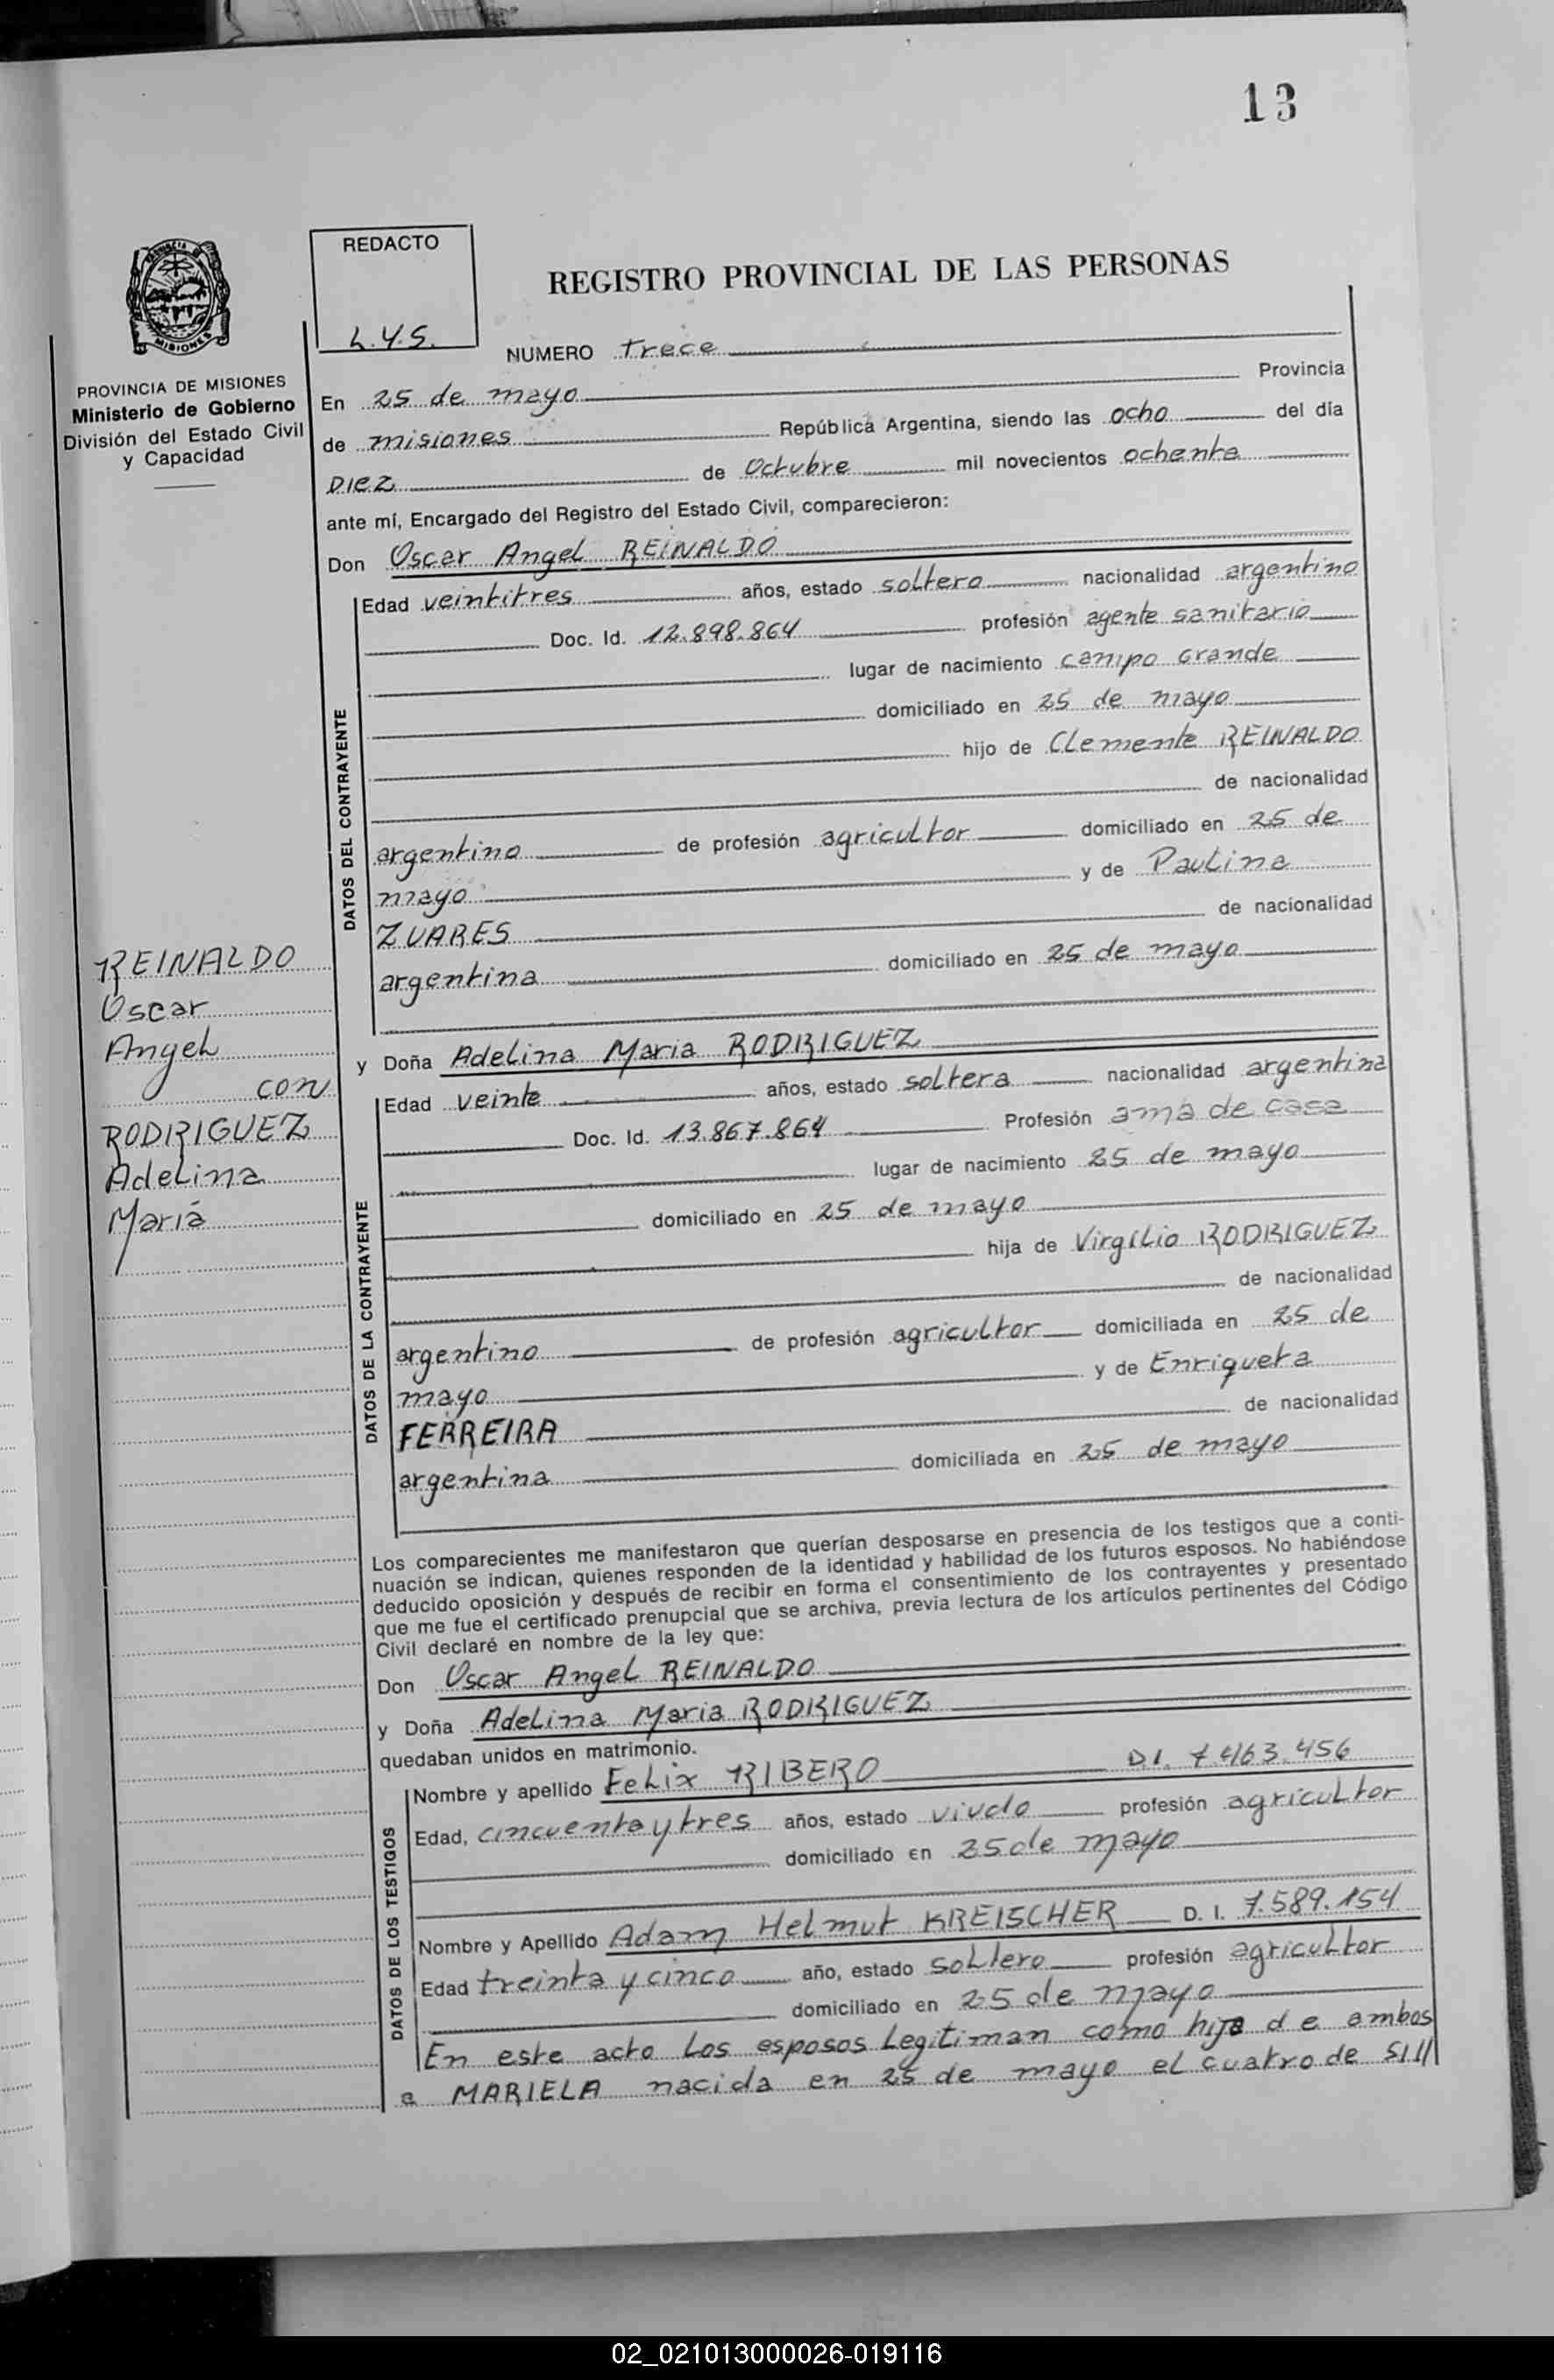 13
REDACTO
L.Y.S.
REGISTRO PROVINCIAL DE LAS PERSONAS
MISIONES
PROVINCIA DE MISIONES
Ministerio de Gobierno
División del Estado Civil
y Capacidad
NUMERO trece
En 25 de mayo Provincia
de misiones República Argentina, siendo las ocho del día
Diez de Octubre mil novecientos ochenta
ante mí, Encargado del Registro del Estado Civil, comparecieron:
Don Oscar Angel REINALDO
DATOS DEL CONTRAYENTE
Edad veintitres años, estado soltero nacionalidad argentino
Doc. Id. 12.898.864 profesión agente sanitario
lugar de nacimiento campo Grande
domiciliado en 25 de mayo
hijo de Clemente REINALDO
de nacionalidad
argentino de profesión agricultor domiciliado en 25 de
mayo y de Paulina
ZUARES de nacionalidad
argentina domiciliado en 25 de mayo
REINALDO
Oscar
Angel
con
RODRIGUEZ
Adelina
Maria
y Doña Adelina Maria RODRIGUEZ
DATOS DE LA CONTRAYENTE
Edad veinte años, estado soltera nacionalidad argentina
Doc. Id. 13.867.864 Profesión ama de casa
lugar de nacimiento 25 de mayo
domiciliado en 25 de mayo
hija de Virgilio RODRIGUEZ
de nacionalidad
argentino de profesión agricultor domiciliada en 25 de
mayo y de Enriqueta
FERREIRA de nacionalidad
argentina domiciliada en 25 de mayo
Los comparecientes me manifestaron que querían desposarse en presencia de los testigos que a conti-
nuación se indican, quienes responden de la identidad y habilidad de los futuros esposos. No habiéndose
deducido oposición y después de recibir en forma el consentimiento de los contrayentes y presentado
que me fue el certificado prenupcial que se archiva, previa lectura de los artículos pertinentes del Código
Civil declaré en nombre de la ley que:
Don Oscar Angel REINALDO
y Doña Adelina Maria RODRIGUEZ
quedaban unidos en matrimonio.
DATOS DE LOS TESTIGOS
Nombre y apellido Felix RIBERO D.I. 7.463.456
Edad, cincuenta y tres años, estado viudo profesión agricultor
domiciliado en 25 de mayo
Nombre y Apellido Adam Helmut KREISCHER D. I. 7.589.154
Edad treinta y cinco año, estado soltero profesión agricultor
domiciliado en 25 de mayo
En este acto los esposos Legitiman como hija de ambos
a MARIELA nacida en 25 de mayo el cuatro de
02_021013000026-019116